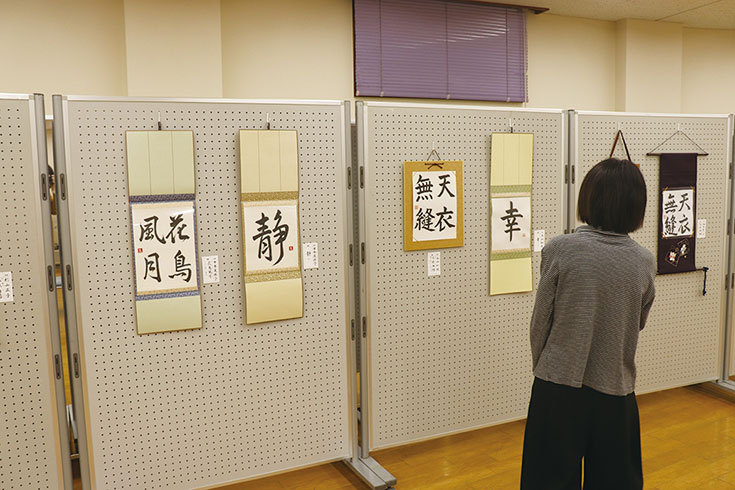 花鳥
風月
静
天衣
無縫
幸
天衣
無縫